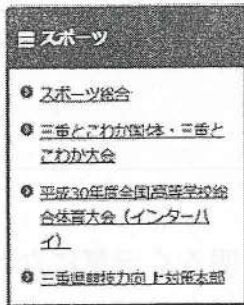 スポーツ
スポーツ総合
三重とこわか国体・三重と
こわか大会
平成30年度全国高等学校総
合体育大会（インターハ
イ）
三重県競技力向上対策本部